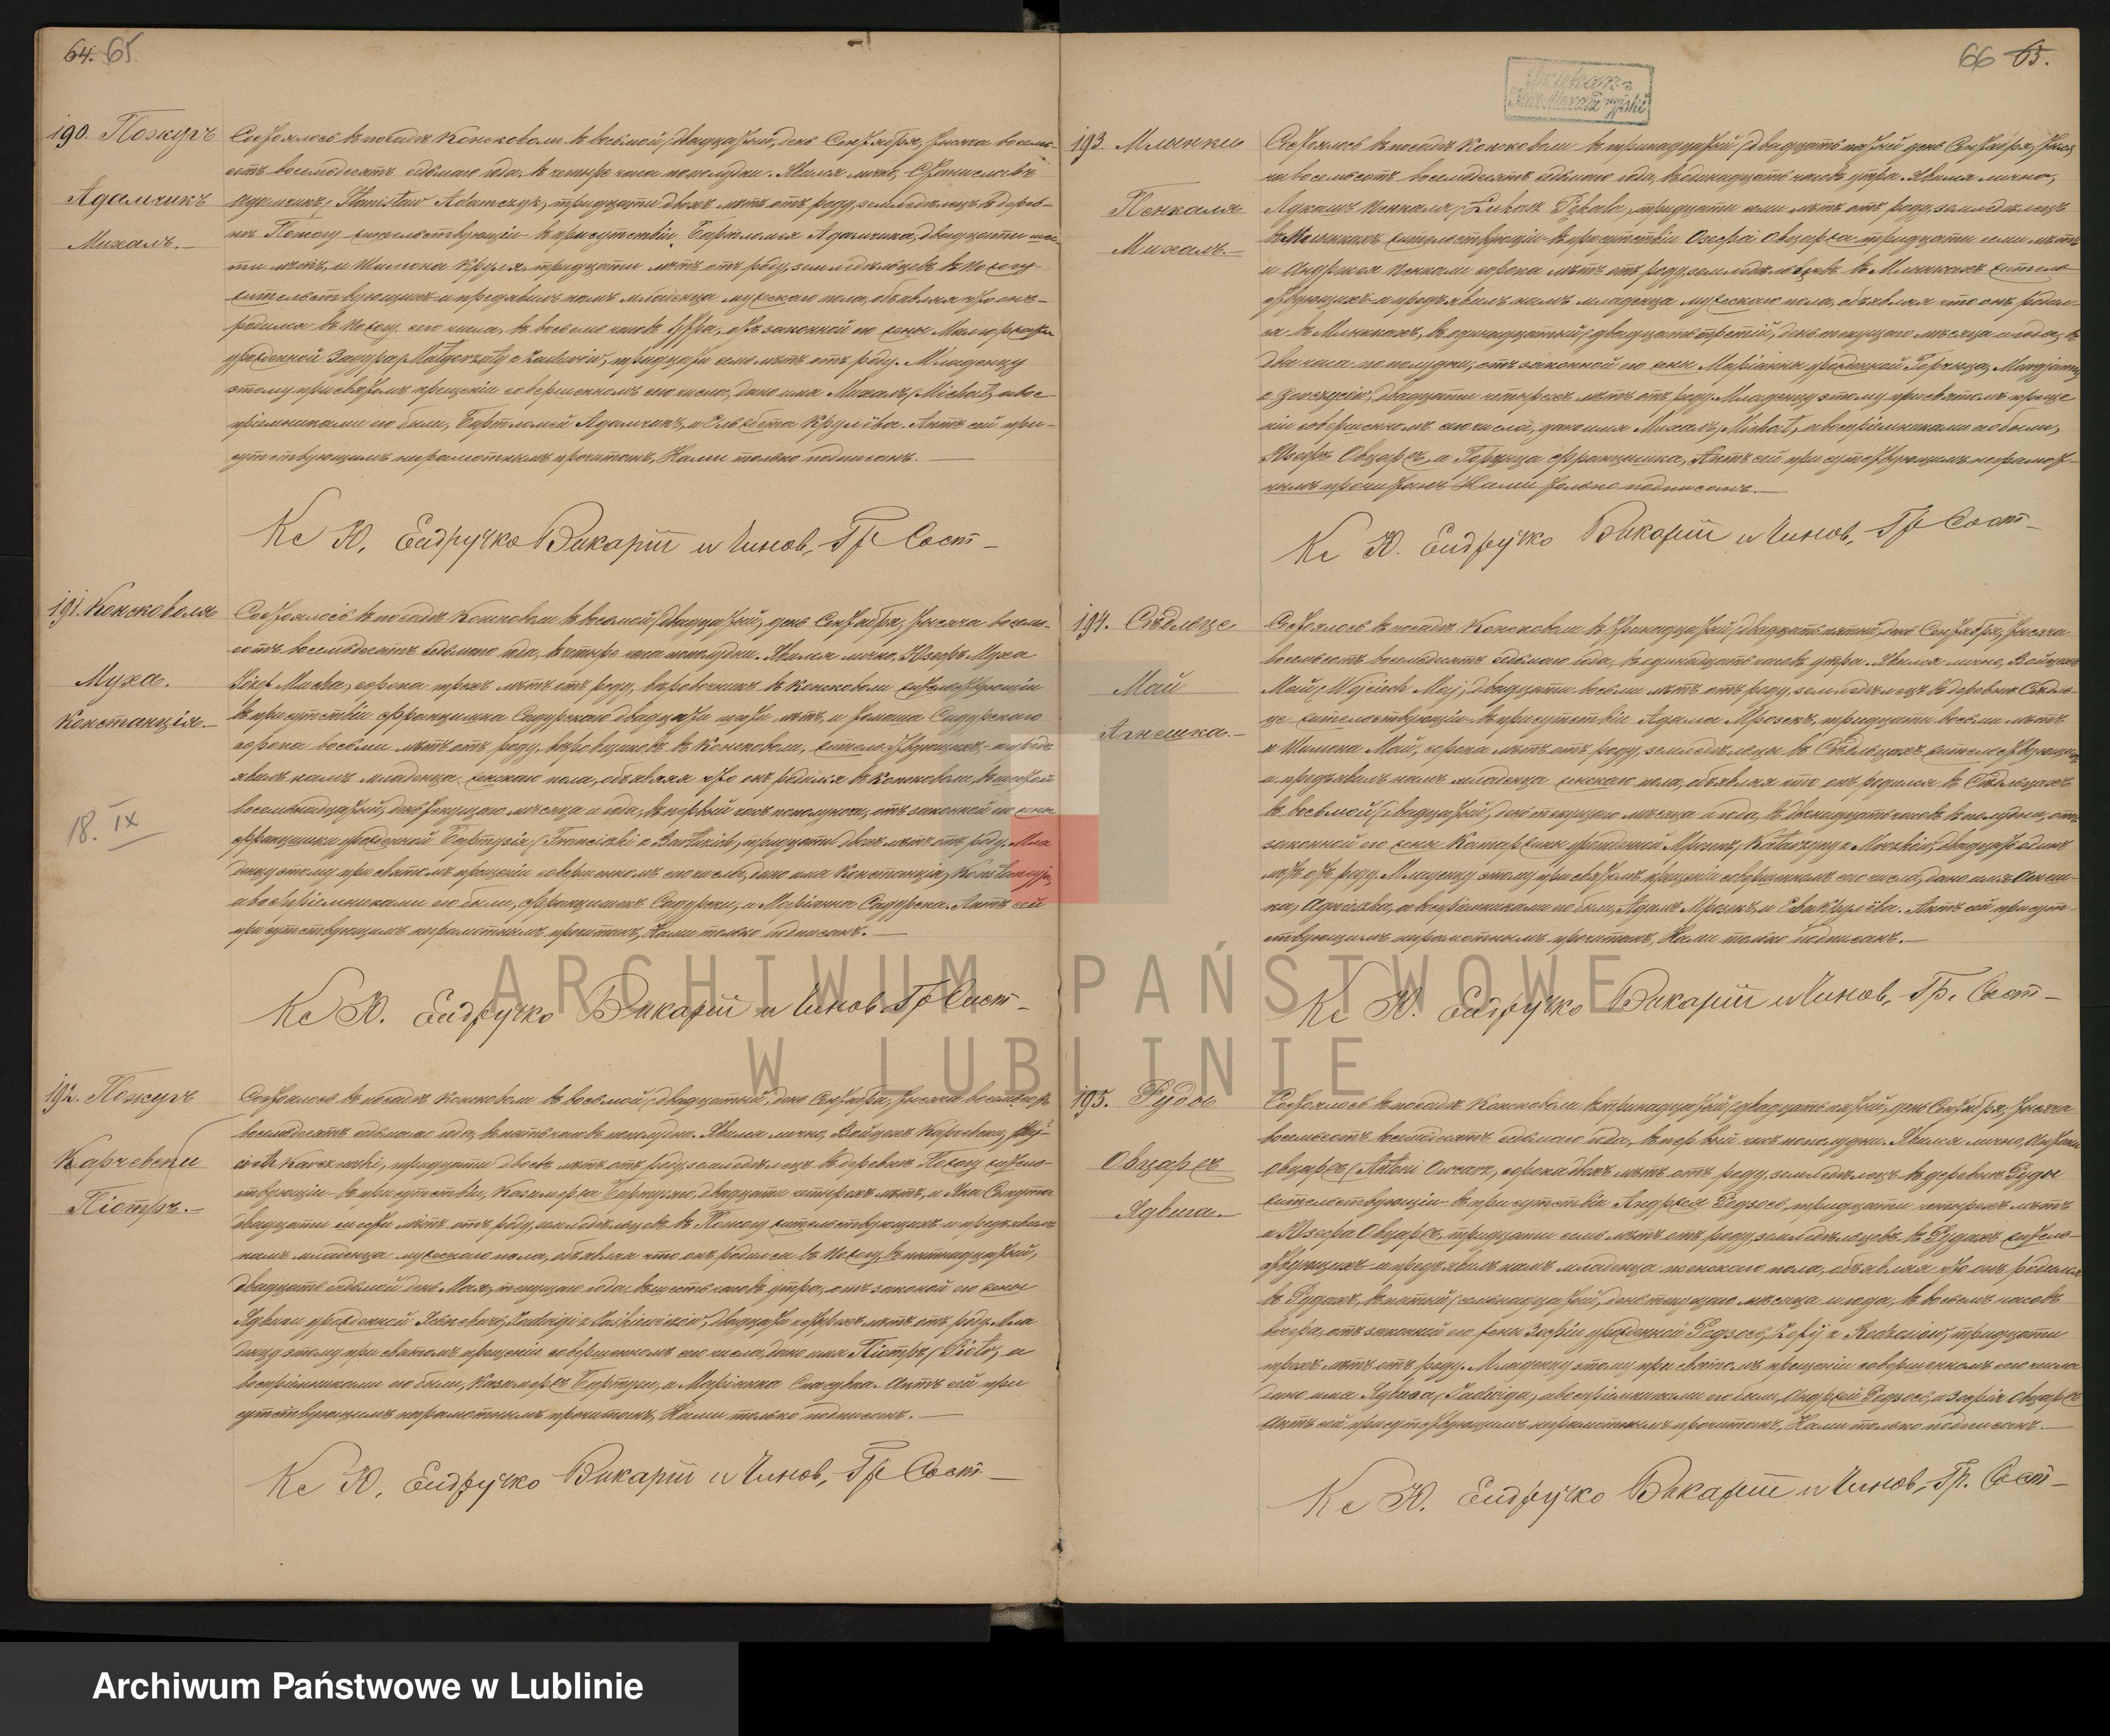 64. 65
190. Пожугъ
Адамчикъ
Михалъ.—
Состоялось въ посадѣ Консковоли въ восьмой /двадцатый/ день Сентября, тысяча восемь-
сотъ восемьдесятъ седьмаго года, въ четыре часа пополудни. Явился лично, Станиславъ
Адамчикъ, /Stanisław Adamczyk/, тридцати двохъ лѣтъ отъ роду, земледѣлецъ въ дерев-
нѣ Пожогу жительствующій въ присутствіи Бартломея Адамчика, двадцати шес-
ти лѣтъ, и Шимона Круля, тридцати лѣтъ отъ роду, земледѣльцевъ въ Пожогу
жительствующихъ и предъявилъ намъ младенца мужескаго пола, объявляя что онъ
родился въ Пожогу сего числа, въ восемь часовъ утра, отъ законной его жены Малгоржаты
урожденной Задура /Małgorzaty z Zadurów/, тридцати семи лѣтъ отъ роду. Младенцу
этому при святомъ крещеніи совершенномъ сего числа, дано имя Михалъ /Michał/, а вос-
пріемниками его были, Бартломей Адамчикъ, и Ельжбета Крулёва. Актъ сей при-
сутствующимъ неграмотнымъ прочитанъ, Нами только подписанъ.—
Кс Ю. Ендручко Викарій и Чинов. Гр Сост—
191. Консковоля
Муха.
Констанція.—
18. IX
Состоялось въ посадѣ Консковоли въ восьмой /двадцатый/ день Сентября, тысяча восемь-
сотъ восемьдесятъ седьмаго года, въ четыре часа пополудни. Явился лично, Юзефъ Муха
/Józef Mucha/, сорока трехъ лѣтъ отъ роду, въ Консковоли жительствующій
въ присутствіи Францишка Садурскаго двадцати лѣтъ, и Томаша Садурскаго
сорока восьми лѣтъ отъ роду, въ Консковоли, жительствующихъ, и предъ-
явилъ намъ младенца женскаго пола, объявляя что онъ родился въ Консковоли, въ шестой
/восемьнадцатый/ день текущаго мѣсяца и года, въ первый часъ пополуночи, отъ законной его жены
Францишки урожденной /Franciszki z/ тридцати двохъ лѣтъ отъ роду. Мла-
денцу этому при святомъ крещеніи совершенномъ сего числа, дано имя Констанція, /Konstancyja/,
а воспріемниками его были, Францишекъ Садурски, и Маріанна Садурска. Актъ сей
присутствующимъ неграмотнымъ прочитанъ, Нами только подписанъ.—
Кс Ю. Ендручко Викарій и Чинов. Гр Сост—
192. Пожугъ
Карчевски
Піотръ.—
Состоялось въ посадѣ Консковоли въ восьмой /двадцатый/ день Сентября, тысяча восемьсотъ
восемьдесятъ седьмаго года, въ пять часовъ пополудни. Явился лично, Войцехъ Карчевски, /Woj-
ciech Karczewski/, тридцати двохъ лѣтъ отъ роду, земледѣлецъ въ деревнѣ Пожогу житель-
ствующій въ присутствіи, Казимержа двадцати четырехъ лѣтъ, и Яна
двадцати лѣтъ отъ роду, земледѣльцевъ въ Пожогу жительствующихъ и предъявилъ
намъ младенца мужескаго пола, объявляя что онъ родился въ Пожогу, въ пятнадцатый,
/двадцать седьмой/ день Мая, текущаго года, въ шесть часовъ утра, отъ законной его жены
Ядвиги урожденной /Jadwigi z/ двадцати четырехъ лѣтъ отъ роду. Мла-
денцу этому при святомъ крещеніи совершенномъ сего числа, дано имя Піотръ /Piotr/, а
воспріемниками его были, Казимержъ и Маріанна. Актъ сей при-
сутствующимъ неграмотнымъ прочитанъ, Нами только подписанъ.—
Кс Ю. Ендручко Викарій и Чинов. Гр Сост.—
66 65.
193. Млынки
Пенкаля
Михалъ.—
Состоялось въ посадѣ Консковоли въ тринадцатый /двадцать пятый/ день Сентября, тыся-
ча восемьсотъ восемьдесятъ седьмаго года, въ одинадцать часовъ утра. Явился лично,
Лукашъ Пенкаля, /Łukasz Pękala/, тридцати лѣтъ отъ роду, земледѣлецъ
въ Млынкахъ жительствующій въ присутствіи Юзефа Овцаржа тридцати семи лѣтъ
и Анджея Пенкали сорока лѣтъ отъ роду, земледѣльцевъ въ Млынкахъ житель-
ствующихъ и предъявилъ намъ младенца мужескаго пола, объявляя что онъ родил-
ся въ Млынкахъ, въ одинадцатый /двадцать третій/ день текущаго мѣсяца и года, въ
два часа пополудни, отъ законной его жены Маріанны урожденной /Maryjanny
z/ двадцати четырехъ лѣтъ отъ роду. Младенцу этому при святомъ креще-
ніи совершенномъ сего числа, дано имя Михалъ, /Michał/, а воспріемниками его были,
Юзефъ Овцаржъ, а Францишка, Актъ сей присутствующимъ неграмот-
нымъ прочитанъ Нами только подписанъ.—
Кс Ю. Ендручко Викарій и Чинов. Гр Сост—
194. Сѣдльце
Май
Агнешка.—
Состоялось въ посадѣ Консковоли въ тринадцатый /двадцать пятый/ день Сентября, тысяча
восемьсотъ восемьдесятъ седьмаго года, въ одинадцать часовъ утра. Явился лично, Войцехъ
Май, /Wojciech Maj/, двадцати восьми лѣтъ отъ роду, земледѣлецъ въ деревнѣ Сѣдль-
це жительствующій въ присутствіи Адама Мрозекъ, тридцати восьми лѣтъ
и Шимона Май, сорока лѣтъ отъ роду, земледѣльцы въ Сѣдльцахъ жительствующихъ
и предъявилъ намъ младенца женскаго пола, объявляя что онъ родился въ Сѣдльцахъ
въ восьмой /двадцатый/ день текущаго мѣсяца и года, въ двенадцать часовъ въ полудни, отъ
законной его жены Катаржины урожденной Мрозекъ, /Katarzyny z Mrozków/, двадцати одинъ
лѣтъ отъ роду. Младенцу этому при святомъ крещеніи совершенномъ сего числа, дано имя Агнеш-
ка, /Agnieszka/, а воспріемниками его были, Адамъ Мрозекъ, и Ева Крулёва. Актъ сей присут-
ствующимъ неграмотнымъ прочитанъ, Нами только подписанъ.—
Кс Ю. Ендручко Викарій и Чинов. Гр. Сост—
195. Руды
Овцаржъ
Ядвига.—
Состоялось въ посадѣ Консковоли въ тринадцатый /двадцать пятый/ день Сентября, тысяча
восемьсотъ восемьдесятъ седьмаго года, въ первый часъ пополудни. Явился лично, Антони
Овцаржъ /Antoni Owcarz/, сорока двохъ лѣтъ отъ роду, земледѣлецъ въ деревнѣ Руды
жительствующій въ присутствіи Анджея Редзосъ, тридцати четырехъ лѣтъ
и Юзефа Овцаржъ, тридцати семи лѣтъ отъ роду, земледѣльцевъ въ Рудахъ житель-
ствующихъ и предъявилъ намъ младенца женскаго пола, объявляя что онъ родился
въ Рудахъ, въ пятый /семнадцатый/ день текущаго мѣсяца и года, въ восемь часовъ
вечера, отъ законной его жены Зофіи урожденной Редзосъ, /Zofij z Redzosiów/, тридцати
трехъ лѣтъ отъ роду. Младенцу этому при святомъ крещеніи совершенномъ сего числа
дано имя Ядвига, /Jadwiga/, а воспріемниками его были, Анджей Редзосъ, и Зофія Овцаржъ
Актъ сей присутствующимъ неграмотнымъ прочитанъ, Нами только подписанъ.—
Кс Ю. Ендручко Викарій и Чинов. Гр. Сост—
ARCHIWUM PAŃSTWOWE
W LUBLINIE
Archiwum Państwowe w Lublinie